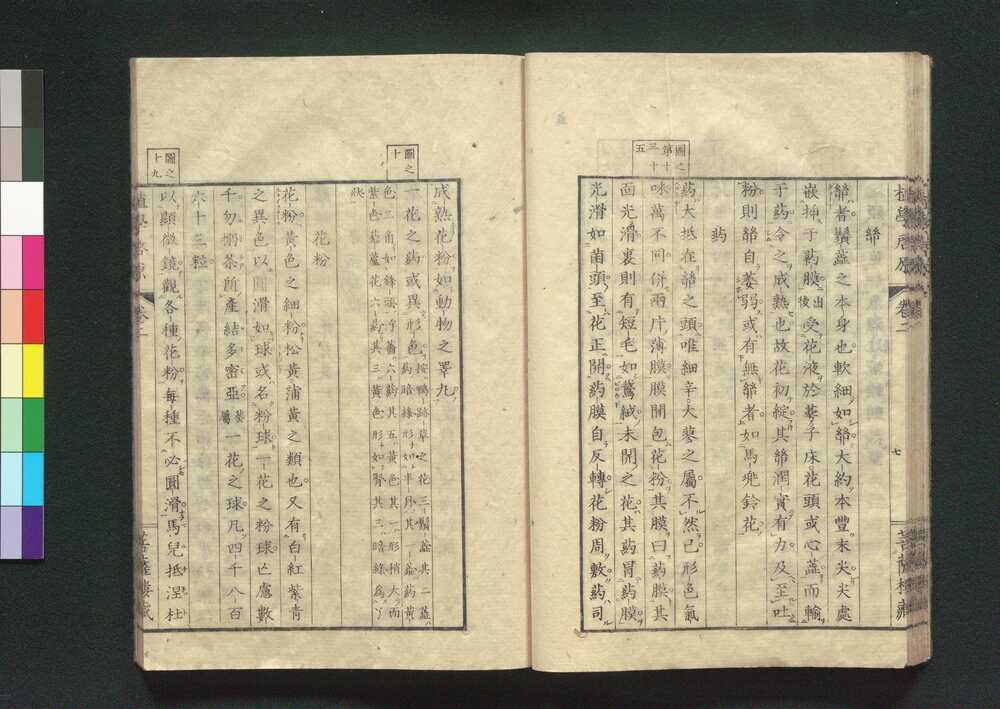 植學啓原 卷二
七
菩薩樓藏
圖之第十三十五
絲
絲者鬚蕋之本身也軟細如絲大約本豐末尖尖處
嵌挿于葯膜後出受花液於蓼子床花頭或心蕋而輸
于葯令之成熟也故花初綻其絲潤實有力及至吐
粉則絲自萎弱或有無絲者如馬兜鈴花
葯
葯大抵在絲之頭唯細辛大蓼之屬不然已形色氣
味萬不同併兩片薄膜膜開包花粉其膜曰葯膜其
面光滑裏則有短毛如鵞絨未開之花其葯胃葯膜
光滑如菌頭至花正開葯膜自反轉花粉周敷葯司
圖之十
成熟花粉如動物之睪丸
一花之葯或異形色按鴨跖草之花三鬚蕋其二蕋
色二角如鋒頭
半月其一蕋葯黃
紫色
花六葯其三黃色形如腎其三暗綠爲丫
狀
花粉
花粉黃色之細粉松黃蒲黃之類也又有白紅紫青
之異色以圓滑如球或名粉球一花之粉球亡慮數
千勿
茶
產結多蜜亞葵屬一花之球凡四千八百
六十三粒
圖之十九
以顯微鏡觀各種花粉每種不必圓滑馬兒抵涅杜
植學啓原 卷二
菩薩樓藏